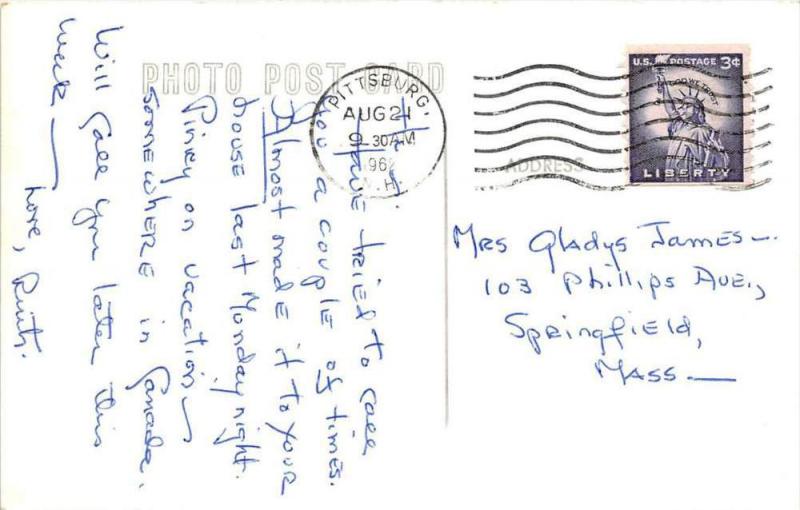 PHOTO POST CARD
PITTSBURG,
AUG 21
9 30AM
196
N.H.
U.S. POSTAGE 3¢
IN GOD WE TRUST
LIBERTY
ADDRESS
Hi!
Have tried to call
you a couple of times.
Almost made it to your
house last Monday night.
Pinky on vacation —
somewhere in Canada.
Will call you later this
week —
Love, Ruth.
Mrs Gladys James —
103 Phillips Ave.,
Springfield,
Mass. —